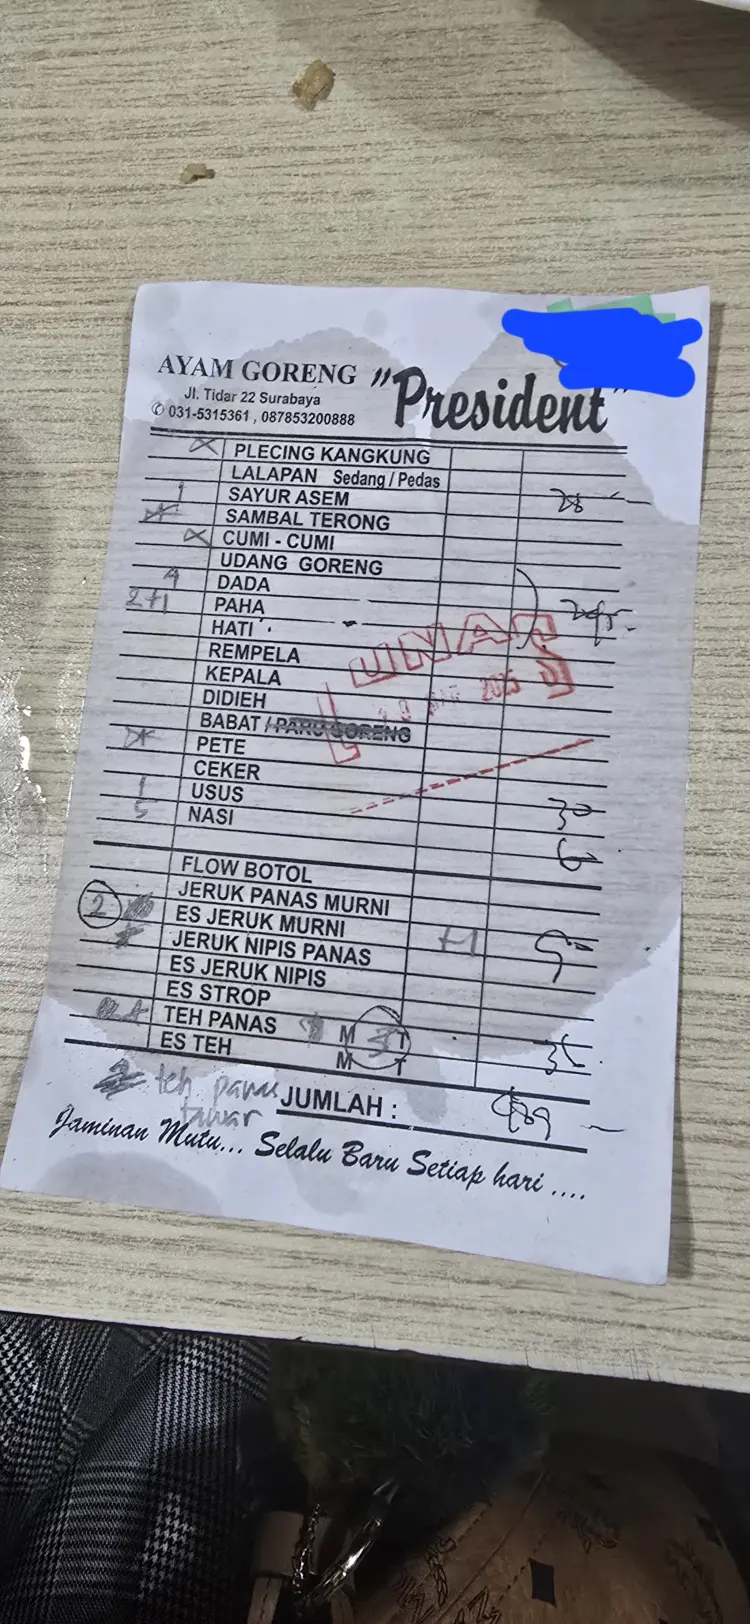 AYAM GORENG "President"
Jl. Tidar 22 Surabaya
✆ 031-5315361 , 087853200888
PLECING KANGKUNG
LALAPAN Sedang / Pedas
1 SAYUR ASEM 28
SAMBAL TERONG
CUMI - CUMI
UDANG GORENG
4 DADA
2+1 PAHA
HATI
REMPELA
KEPALA
DIDIEH
BABAT / PARU GORENG
PETE
CEKER
1 USUS 30
5 NASI
FLOW BOTOL
JERUK PANAS MURNI
2 ES JERUK MURNI
JERUK NIPIS PANAS
ES JERUK NIPIS
ES STROP
TEH PANAS M 3 T
ES TEH M T
teh panas
tawar
JUMLAH :
Jaminan Mutu... Selalu Baru Setiap hari ....
LUNAS
2025